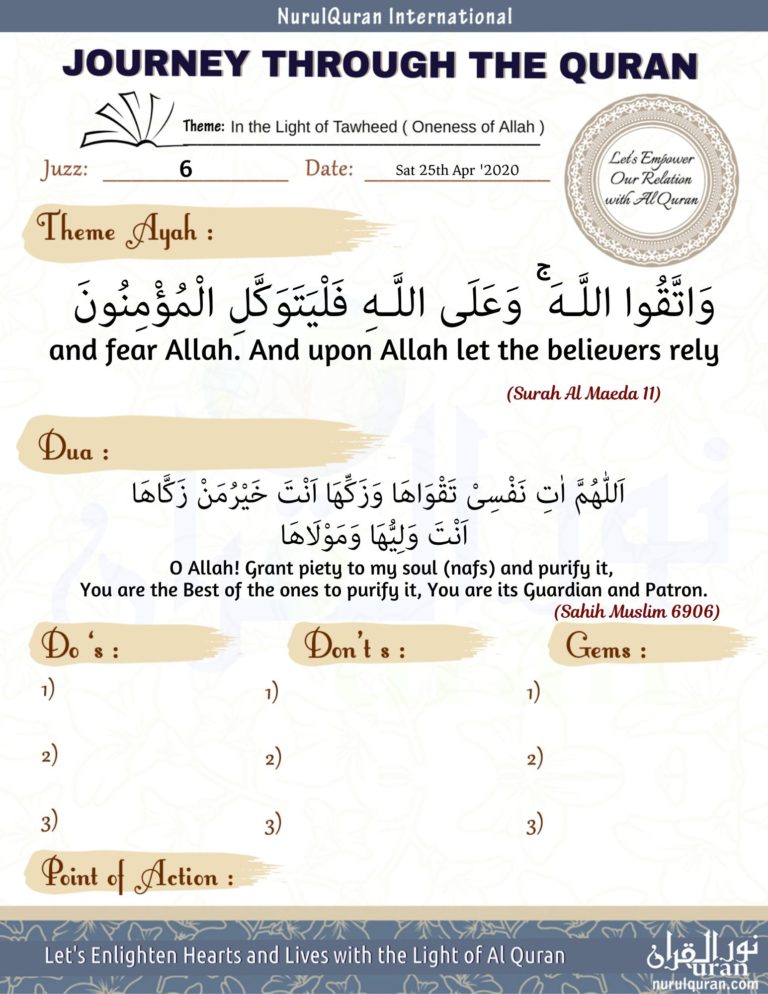 NurulQuran International
JOURNEY THROUGH THE QURAN
Theme: In the Light of Tawheed ( Oneness of Allah )
Juzz: 6 Date: Sat 25th Apr '2020
Let's Empower
Our Relation
with Al Quran
Theme Ayah :
وَاتَّقُوا اللَّـهَ ۚ وَعَلَى اللَّـهِ فَلْيَتَوَكَّلِ الْمُؤْمِنُونَ
and fear Allah. And upon Allah let the believers rely
(Surah Al Maeda 11)
Dua :
اَللّٰهُمَّ اٰتِ نَفْسِیْ تَقْوَاهَا وَزَكِّهَا اَنْتَ خَيْرُمَنْ زَكَّاهَا
اَنْتَ وَلِيُّهَا وَمَوْلَاهَا
O Allah! Grant piety to my soul (nafs) and purify it,
You are the Best of the ones to purify it, You are its Guardian and Patron.
(Sahih Muslim 6906)
Do 's : Don't s : Gems :
1) 1) 1)
2) 2) 2)
3) 3) 3)
Point of Action :
Let's Enlighten Hearts and Lives with the Light of Al Quran
نور القرآن
uran
nurulquran.com